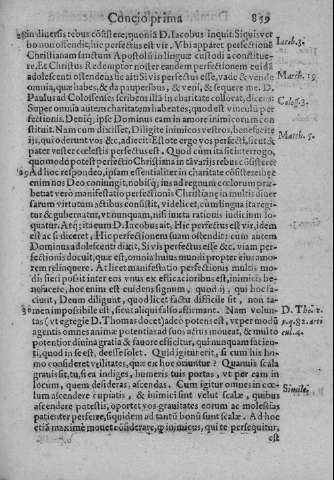 Concio prima 859
in diuersis rebus cõsistere, quoniã D. Iacobus inquit. Siquis ver
bo non offendit, hic perfectus est vir. Vbi apparet perfectionẽ
Christianam sanctum Apostolũ in linguæ custodia constitue-
re. Et Christus Redemptor noster eandem perfectionem cuidã
adolescenti ostendens sic ait: Si vis perfectus esse, vade & vende
omnia, quæ habes, & da pauperibus, & veni, & sequere me. D.
Paulus ad Colossenses scribens illã in charitate collocat, dicens:
Super omnia autem charitatem habentes, quod est vinculũ per
fectionis. Deniq; ipse Dominus eam in amore inimicorum con
stituit. Nam cum dixisset, Diligite inimicos vestros, benefacite
ijs, qui oderunt vos &c, adiecit: Estote ergo vos perfecti, sicut &
pater vester cælestis perfectus est. Quod cum ita sit interrogo,
quomodò potest perfectio Christiana in tã varijs rebus cõsistere
Ad hoc respondeo, ipsam essentialiter in charitate cõsistere: hæc
enim nos Deo coniungit, nobisq; ius ad regnum cælorum præ-
bet: at verò manifestatio perfectionis Christianę in multis diuer
sarum virtutum actibus consistit, videlicet, cùm lingua ita regi-
tur & gubernatur, vt nunquam, nisi iuxta rationis iudicium lo-
quatur. Atq; ita cum D. Iacobus ait, Hic perfectus est vir, idem
est ac si diceret, Hic perfectionem suam ostendit: cum autem
Dominus adolescenti dixit, Si vis perfectus esse &c. viam per-
fectionis docuit, quæ est, omnia huius mundi propter eius amo-
rem relinquere. At licet manifestatio perfectionis multis mo-
dis fieri possit inter eos vnus ex efficacioribus est, inimicis be-
nefacere, hoc enim est euidens signum, quod ij, qui hoc fa-
ciunt, Deum diligunt, quod licet factu difficile sit, non ta-
men impossibile est, sicut aliqui falsò affirmant. Nam volun-
tas (vt egregiè D. Thomas docet) adeò potens est, vt per modũ
agentis omnes animæ potentias ad suos actus moueat, & multo
potentior diuina gratia & fauore efficitur, qui nunquam facien-
ti, quod in se est, deesse solet. Quid igitur erit, si cum his ho-
mo consideret vtilitates, quæ ex hoc oriuntur? Quamuis scala
grauis sit, tu, si ea indiges, humeris tuis portas, vt per eam in
locum, quem desideras, ascendas. Cum igitur omnes in cæ-
lum ascendere cupiatis, & inimici sint velut scalæ, quibus
ascendere potestis, oportet vos grauitates eorum ac molestias
patienter perferre, siquidem ad tantũ bonũ sunt scalæ. Ad hoc
etiã maximè mouet cõsiderare, q̃ inimicus, qui te persequitur,
est
Iacob. 3.
Matth. 19.
Coloss. 3.
Matth. 5.
D. Tho. 1.
p. q. 82. arti
cul. 4.
Simile.